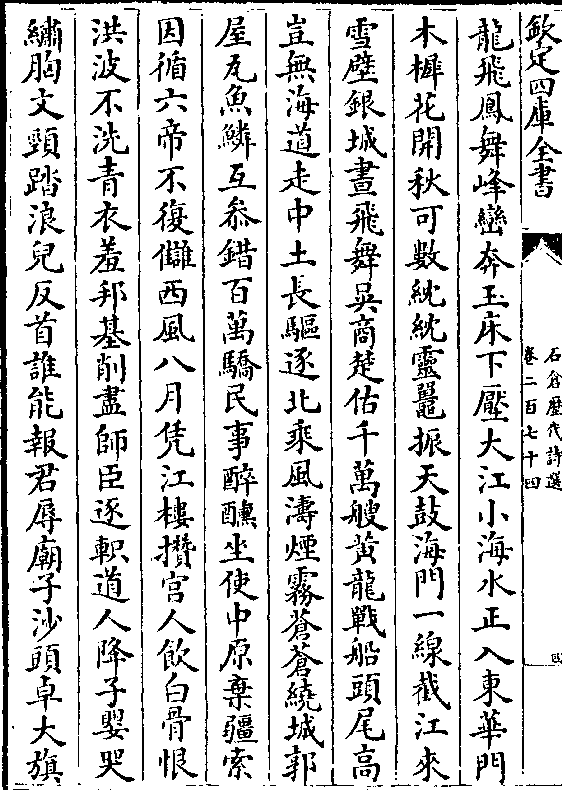 欽定四庫全書
石倉歷代詩選
卷二百七十四
四
龍飛鳳舞峰巒奔玉床下壓大江小海水正入東華門
木樨花開秋可數紞紞靈鼉振天鼓海門一線截江來
雪壁銀城晝飛舞吳商楚估千萬艘黃龍戰船頭尾高
豈無海道走中土長驅逐北乘風濤煙霧蒼蒼繞城郭
屋瓦魚鱗互叅錯百萬驕民事醉醺坐使中原棄疆索
因循六帝不復讎西風八月凭江樓攢宮人飲白骨恨
洪波不洗青衣羞邦基削盡師臣逐軹道人降子嬰哭
繡胸文頸踏浪兒反首誰能報君辱廟子沙頭卓大旗